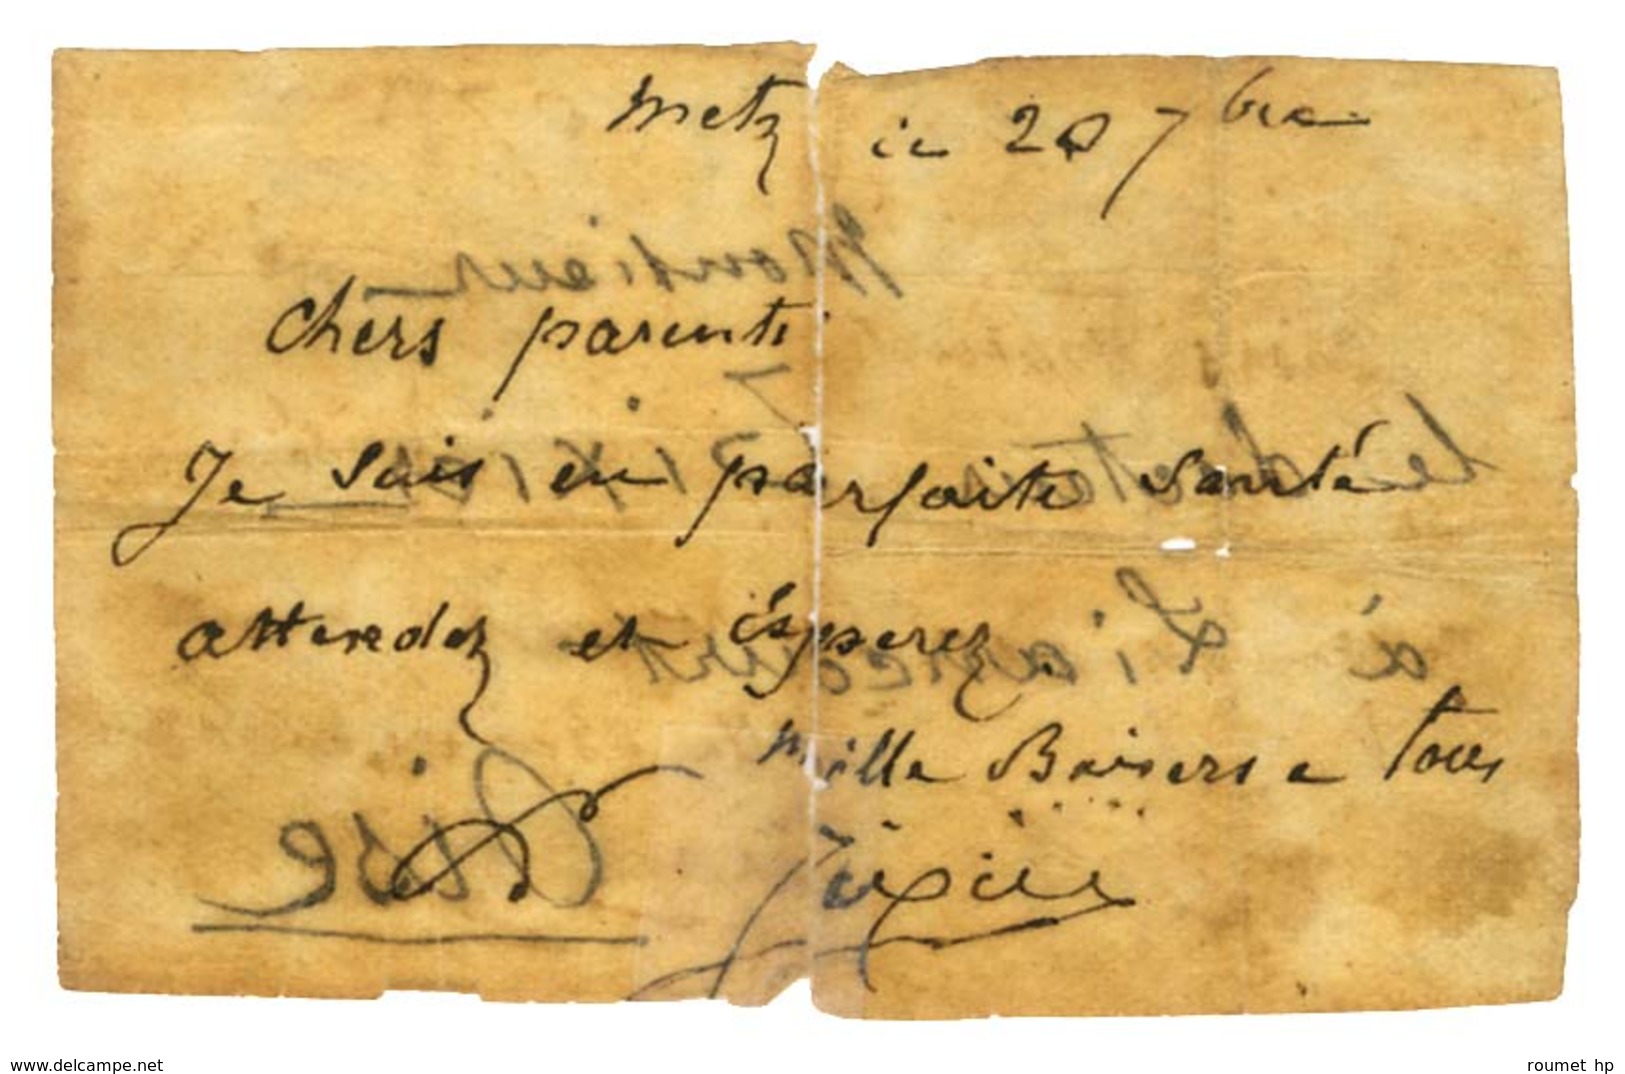 Metz ce 20 7bre
Monsieur
Chers parents
Je suis en parfaite santé
le docteur
attendez et Espérez
à Liancourt
Mille Baisers a Tous
Oise
delcampe.net
roumet hp